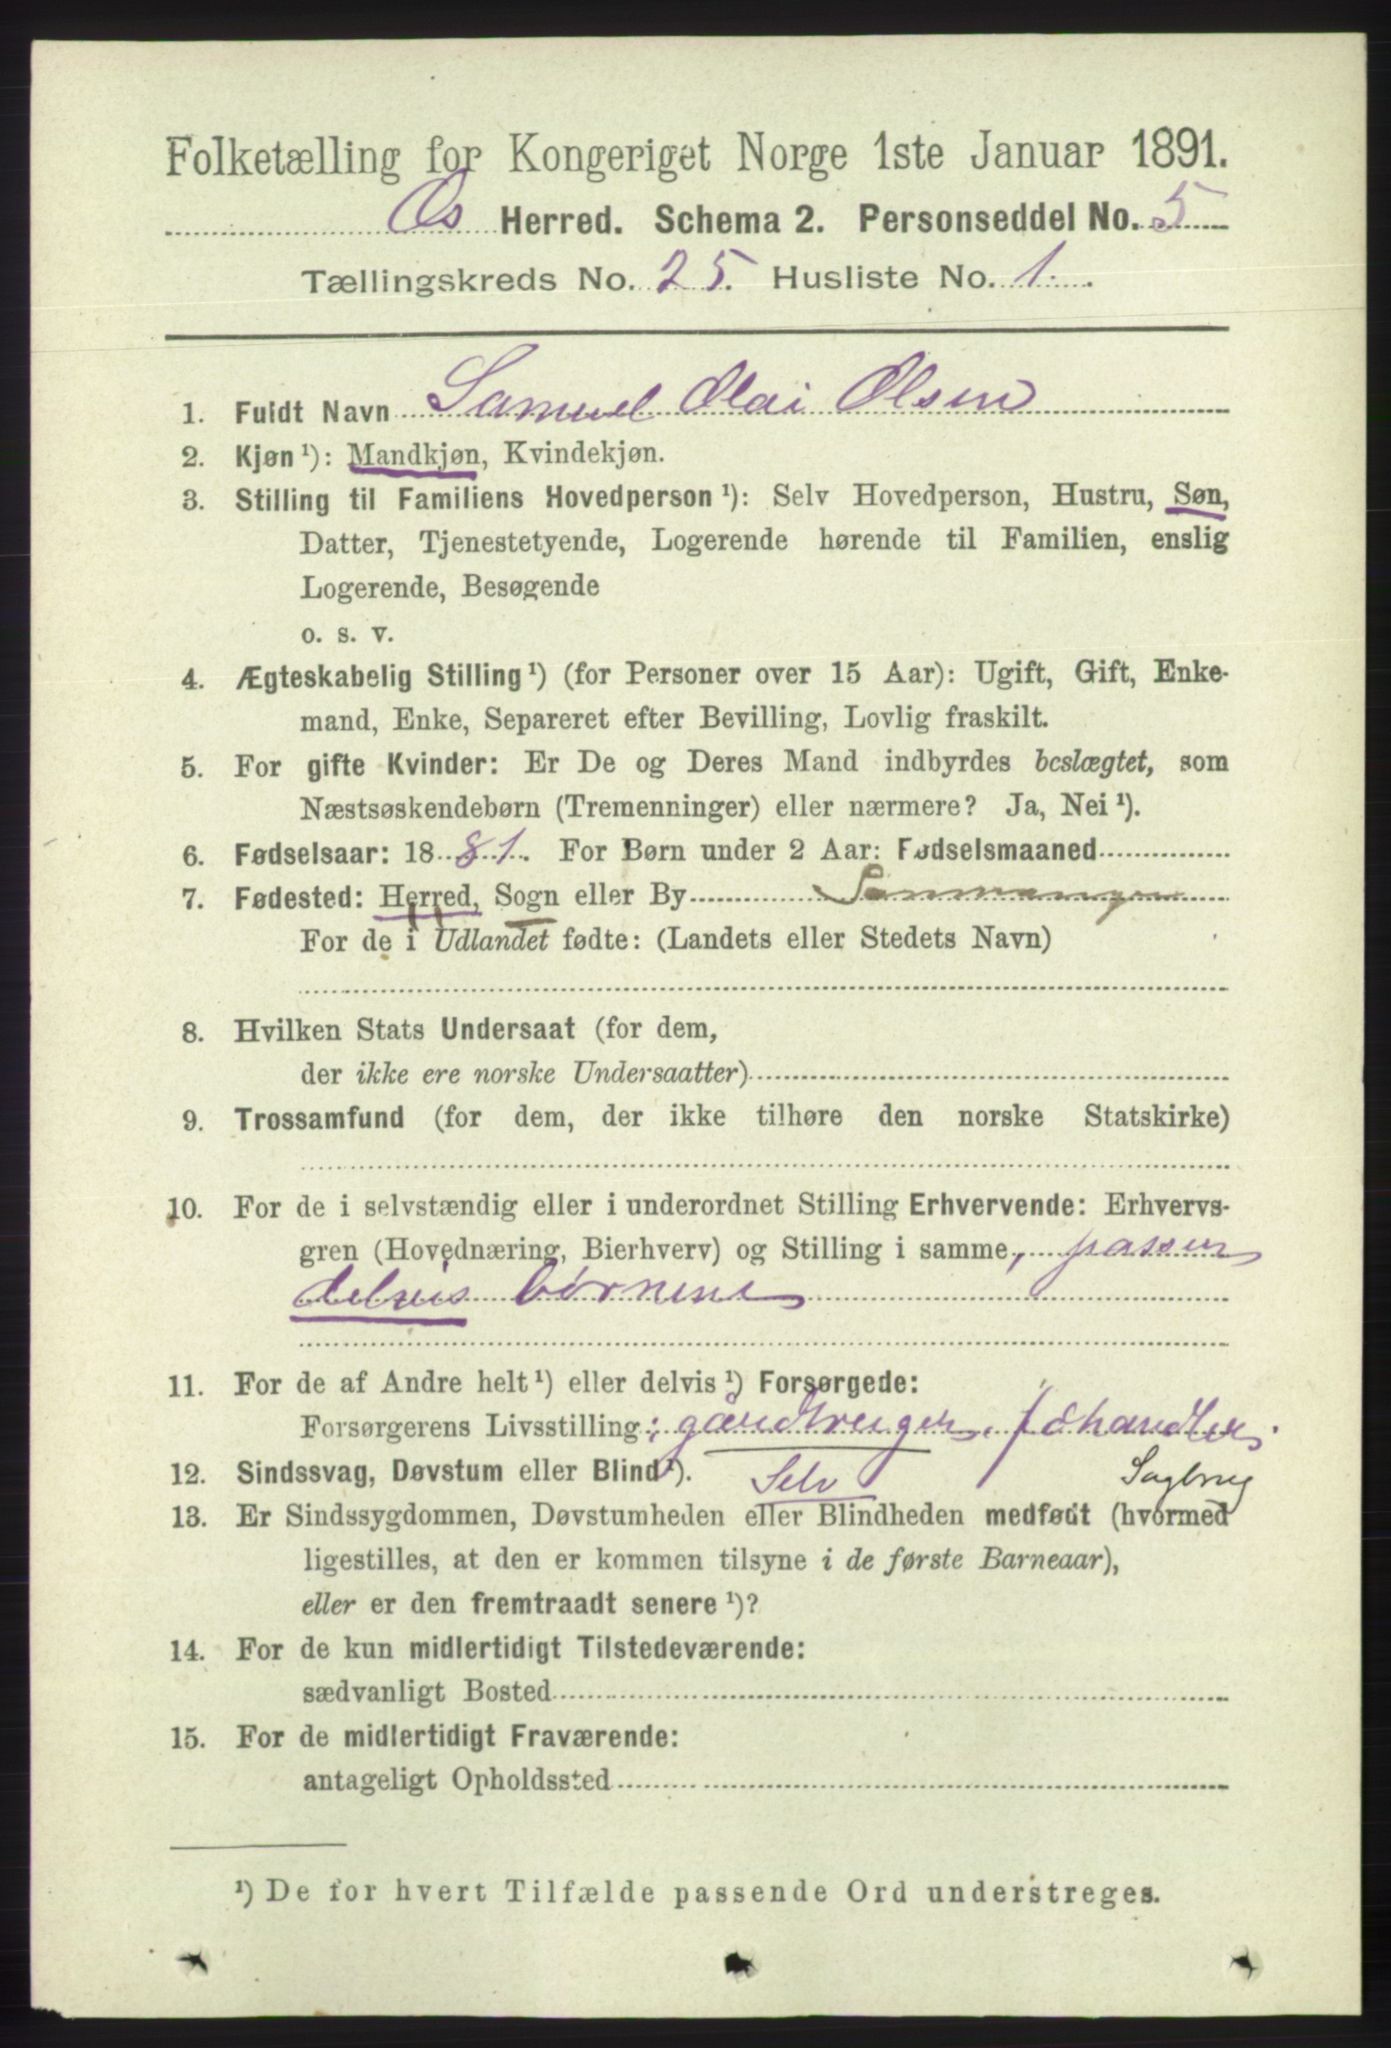 Folketælling for Kongeriget Norge 1ste Januar 1891.
Os Herred. Schema 2. Personseddel No. 5
Tællingskreds No. 25. Husliste No. 1.
1. Fuldt Navn Samuel Olai Olsen
2. Kjøn ¹): Mandkjøn, Kvindekjøn.
3. Stilling til Familiens Hovedperson ¹): Selv Hovedperson, Hustru, Søn,
Datter, Tjenestetyende, Logerende hørende til Familien, enslig
Logerende, Besøgende
o. s. v.
4. Ægteskabelig Stilling ¹) (for Personer over 15 Aar): Ugift, Gift, Enke-
mand, Enke, Separeret efter Bevilling, Lovlig fraskilt.
5. For gifte Kvinder: Er De og Deres Mand indbyrdes beslægtet, som
Næstsøskendebørn (Tremenninger) eller nærmere? Ja, Nei ¹).
6. Fødselsaar: 1881. For Børn under 2 Aar: Fødselsmaaned
7. Fødested: Herred, Sogn eller By
For de i Udlandet fødte: (Landets eller Stedets Navn)
8. Hvilken Stats Undersaat (for dem,
der ikke ere norske Undersaatter)
9. Trossamfund (for dem, der ikke tilhøre den norske Statskirke)
10. For de i selvstændig eller i underordnet Stilling Erhvervende: Erhvervs-
gren (Hovednæring, Bierhverv) og Stilling i samme, passer
delvis børnene
11. For de af Andre helt ¹) eller delvis ¹) Forsørgede:
Forsørgerens Livsstilling:
12. Sindssvag, Døvstum eller Blind ¹). Selv Sagbrug
13. Er Sindssygdommen, Døvstumheden eller Blindheden medfødt (hvormed
ligestilles, at den er kommen tilsyne i de første Barneaar),
eller er den fremtraadt senere ¹)?
14. For de kun midlertidigt Tilstedeværende:
sædvanligt Bosted
15. For de midlertidigt Fraværende:
antageligt Opholdssted
¹) De for hvert Tilfælde passende Ord understreges.